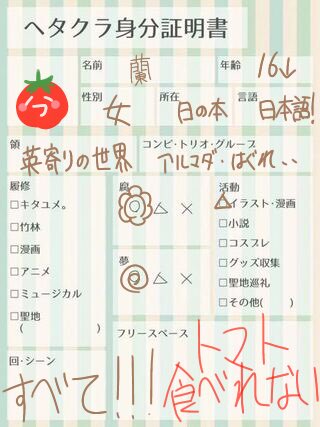 ヘタクラ身分証明書
名前 蘭
年齢 16↓
性別 女
所在 日の本
言語 日本語!
領 英寄りの世界
コンビ・トリオ・グループ アルマダ・はぐれ、、
履修
□キタユメ。
□竹林
□漫画
□アニメ
□ミュージカル
□聖地
( )
腐
◎ △ ×
夢
◎ △ ×
活動
□イラスト・漫画
□小説
□コスプレ
□グッズ収集
□聖地巡礼
□その他( )
回・シーン
すべて!!!
フリースペース
トマト
食べれない